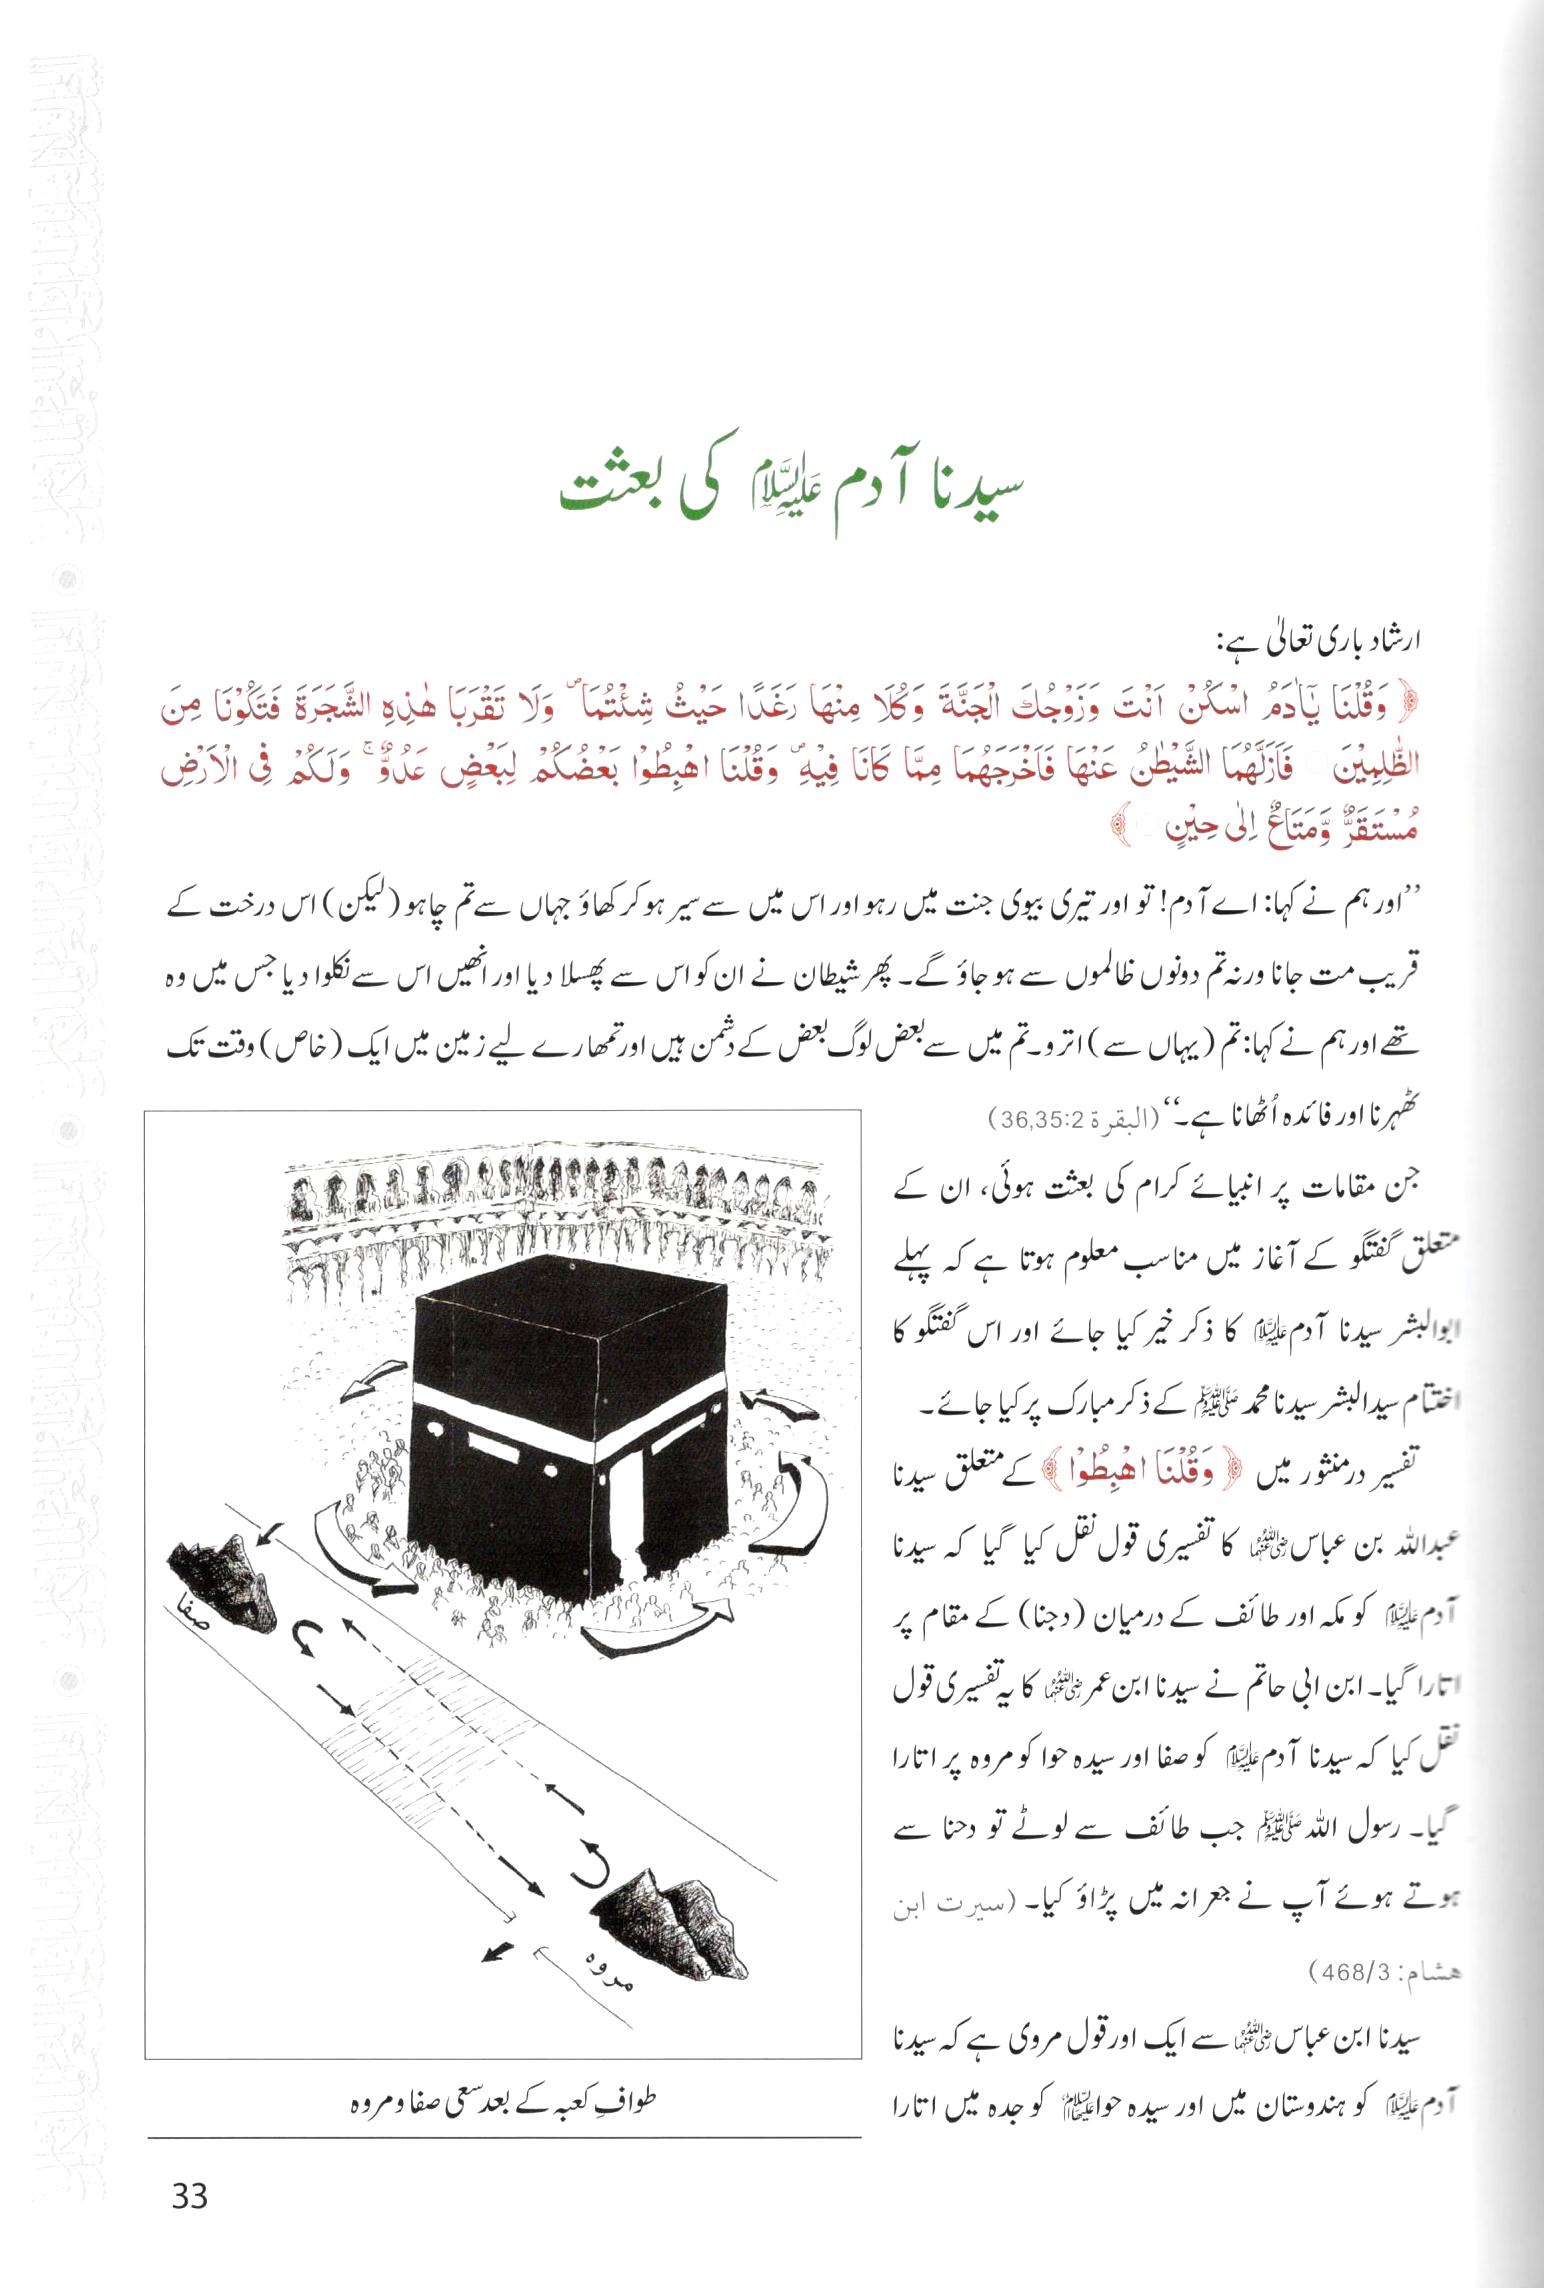 سیدنا آدم علیہ السلام کی بعثت
ارشاد باری تعالیٰ ہے:
﴿ وَقُلْنَا يٰٓاٰدَمُ اسْكُنْ اَنْتَ وَزَوْجُكَ الْجَنَّةَ وَكُلَا مِنْهَا رَغَدًا حَيْثُ شِئْتُمَا ۖ وَلَا تَقْرَبَا هٰذِهِ الشَّجَرَةَ فَتَكُوْنَا مِنَ
الظّٰلِمِيْنَ ۝ فَاَزَلَّهُمَا الشَّيْطٰنُ عَنْهَا فَاَخْرَجَهُمَا مِمَّا كَانَا فِيْهِ ۖ وَقُلْنَا اهْبِطُوْا بَعْضُكُمْ لِبَعْضٍ عَدُوٌّ ۚ وَلَكُمْ فِي الْاَرْضِ
مُسْتَقَرٌّ وَّمَتَاعٌ اِلٰى حِيْنٍ ۝ ﴾
’’اور ہم نے کہا: اے آدم! تو اور تیری بیوی جنت میں رہو اور اس میں سے سیر ہو کر کھاؤ جہاں سے تم چاہو (لیکن) اس درخت کے
قریب مت جانا ورنہ تم دونوں ظالموں سے ہو جاؤ گے۔ پھر شیطان نے ان کو اس سے پھسلا دیا اور انھیں اس سے نکلوا دیا جس میں وہ
تھے اور ہم نے کہا: تم (یہاں سے) اترو۔ تم میں سے بعض لوگ بعض کے دشمن ہیں اور تمھارے لیے زمین میں ایک (خاص) وقت تک
ٹھہرنا اور فائدہ اُٹھانا ہے۔‘‘ (البقرة 36,35:2)
جن مقامات پر انبیائے کرام کی بعثت ہوئی، ان کے
متعلق گفتگو کے آغاز میں مناسب معلوم ہوتا ہے کہ پہلے
ابوالبشر سیدنا آدم علیہ السلام کا ذکر خیر کیا جائے اور اس گفتگو کا
اختتام سیدالبشر سیدنا محمد ﷺ کے ذکر مبارک پر کیا جائے۔
تفسیر درمنثور میں ﴿ وَقُلْنَا اهْبِطُوْا ﴾ کے متعلق سیدنا
عبداللہ بن عباس رضی اللہ عنہما کا تفسیری قول نقل کیا گیا کہ سیدنا
آدم علیہ السلام کو مکہ اور طائف کے درمیان (دجنا) کے مقام پر
اتارا گیا۔ ابن ابی حاتم نے سیدنا ابن عمر رضی اللہ عنہما کا یہ تفسیری قول
نقل کیا کہ سیدنا آدم علیہ السلام کو صفا اور سیدہ حوا کو مروہ پر اتارا
گیا۔ رسول اللہ ﷺ جب طائف سے لوٹے تو دحنا سے
ہوتے ہوئے آپ نے جعرانہ میں پڑاؤ کیا۔ (سیرت ابن
ھشام: 468/3)
سیدنا ابن عباس رضی اللہ عنہما سے ایک اور قول مروی ہے کہ سیدنا
آدم علیہ السلام کو ہندوستان میں اور سیدہ حوا علیہا السلام کو جدہ میں اتارا
صفا
مروہ
طوافِ کعبہ کے بعد سعی صفا و مروہ
33